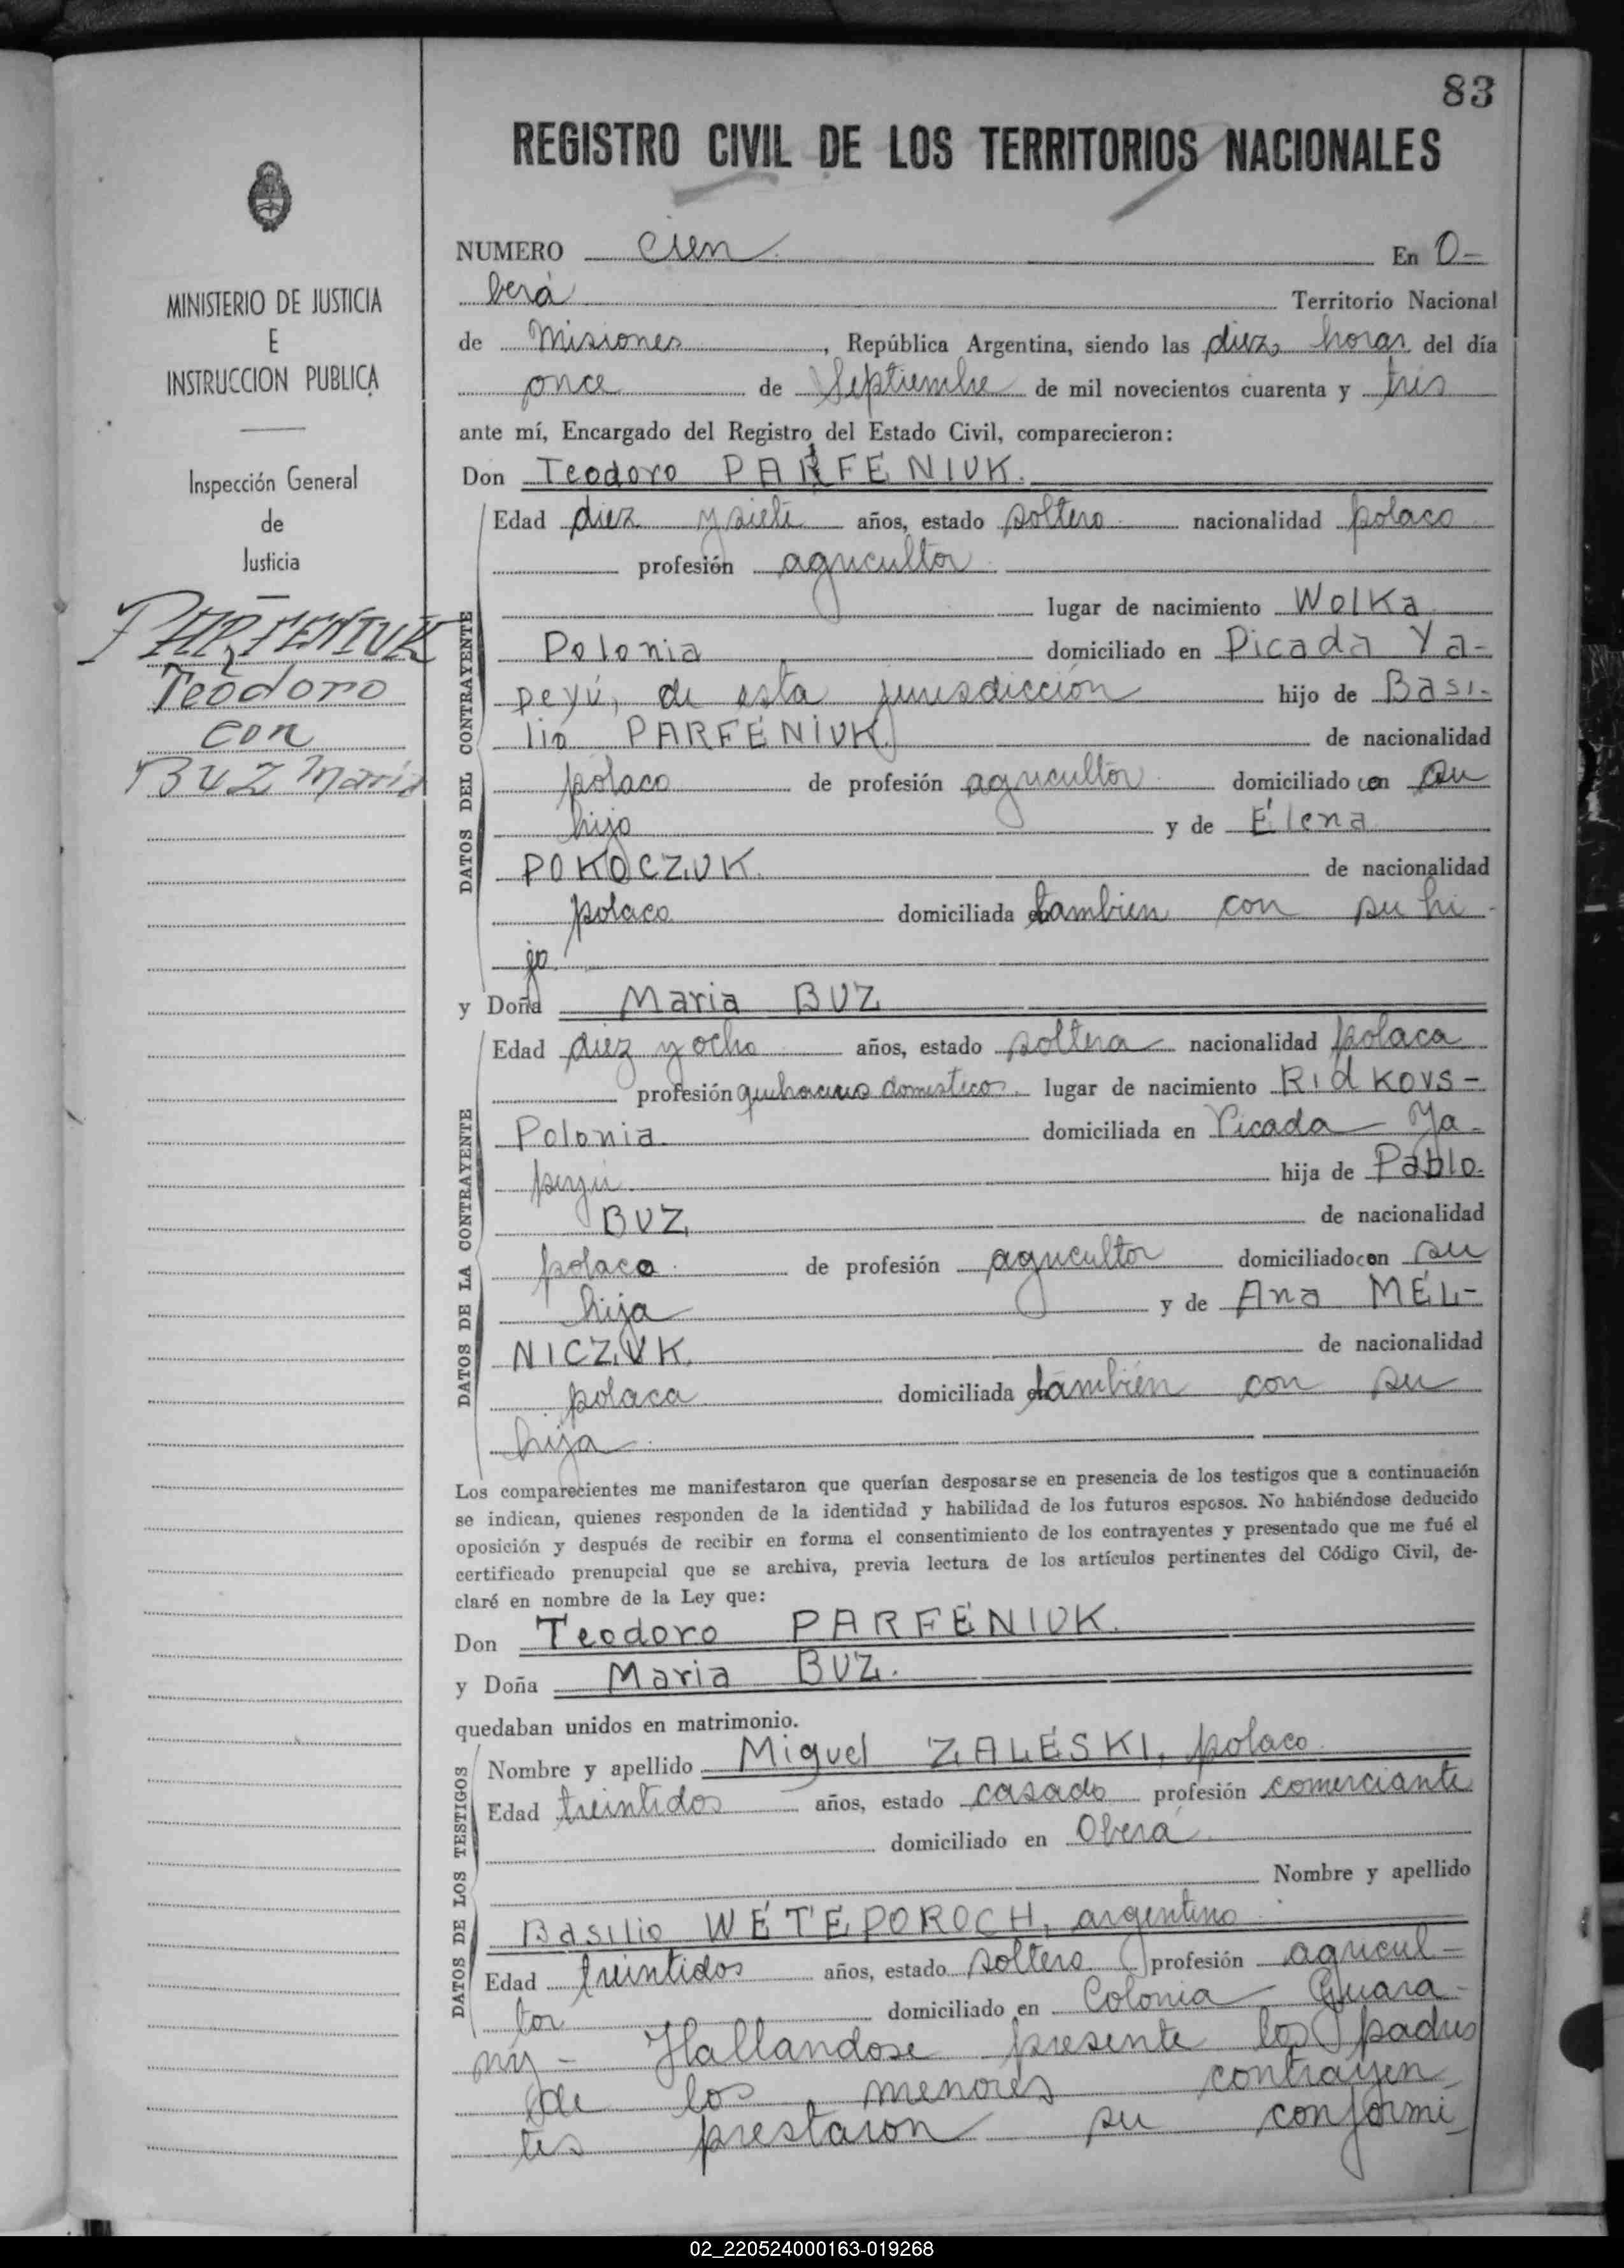 83
REGISTRO CIVIL DE LOS TERRITORIOS NACIONALES
MINISTERIO DE JUSTICIA
E
INSTRUCCION PUBLICA
Inspección General
de
Justicia
PARFENIUK
Teodoro
con
BUZ Maria
NUMERO cien En O-
berá Territorio Nacional
de Misiones, República Argentina, siendo las diez horas del día
once de Septiembre de mil novecientos cuarenta y tres
ante mí, Encargado del Registro del Estado Civil, comparecieron:
Don Teodoro PARFENIUK.
DATOS DEL CONTRAYENTE
Edad diez y siete años, estado soltero nacionalidad polaco
profesión agricultor
lugar de nacimiento Wolka
Polonia domiciliado en Picada Ya-
peyú, de esta jurisdicción hijo de Basi-
lio PARFÉNIUK de nacionalidad
polaco de profesión agricultor domiciliado con su
hijo y de Élena
POKOCZUK. de nacionalidad
polaco domiciliada tambien con su hi-
jo.
y Doña Maria BUZ
DATOS DE LA CONTRAYENTE
Edad diez y ocho años, estado soltera nacionalidad polaca
profesión quehaceres domesticos. lugar de nacimiento Ridkovs-
Polonia domiciliada en Picada Ya-
peyú. hija de Pablo
BUZ de nacionalidad
polaco de profesión agricultor domiciliado con su
hija y de Ana MÉL-
NICZUK. de nacionalidad
polaca domiciliada también con su
hija
Los comparecientes me manifestaron que querían desposarse en presencia de los testigos que a continuación
se indican, quienes responden de la identidad y habilidad de los futuros esposos. No habiéndose deducido
oposición y después de recibir en forma el consentimiento de los contrayentes y presentado que me fué el
certificado prenupcial que se archiva, previa lectura de los artículos pertinentes del Código Civil, de-
claré en nombre de la Ley que:
Don Teodoro PARFÉNIUK.
y Doña Maria BUZ.
quedaban unidos en matrimonio.
DATOS DE LOS TESTIGOS
Nombre y apellido Miguel ZALÉSKI, polaco
Edad treintidos años, estado casado profesión comerciante
domiciliado en Oberá
Nombre y apellido
Basilio WÉTÉPOROCH, argentino
Edad treintidos años, estado soltero profesión agricul-
tor domiciliado en Colonia Guara-
ny - Hallandose presente los padres
de los menores contrayen-
tes prestaron su conformi-
02_220524000163-019268